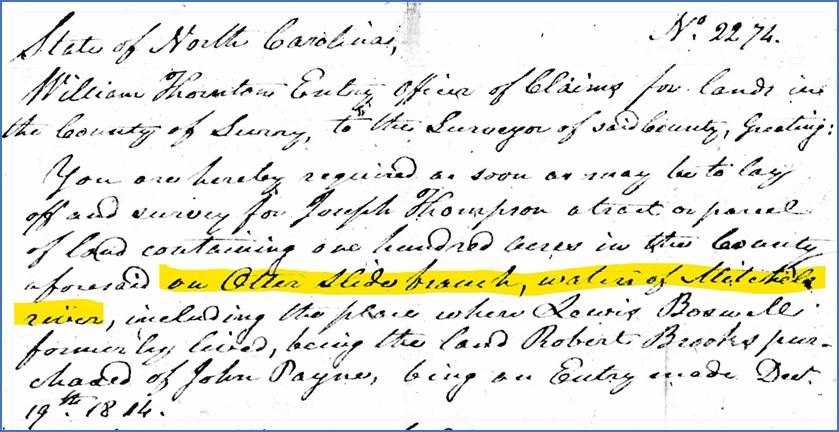 State of North Carolina, No. 2274.
William Thornton Entry officer of Claims for lands in
the County of Surry, to the Surveyor of said County, Greeting:
You are hereby required as soon as may be to lay
off and survey for Joseph Thompson a tract or parcel
of land containing one hundred acres in the County
aforesaid on Otter Slide branch, waters of Mitchels
river, including the place where Lewis Boswell
formerly lived, being the land Robert Brooks pur-
chased of John Payne, being an Entry made Decr.
19th. 1814.